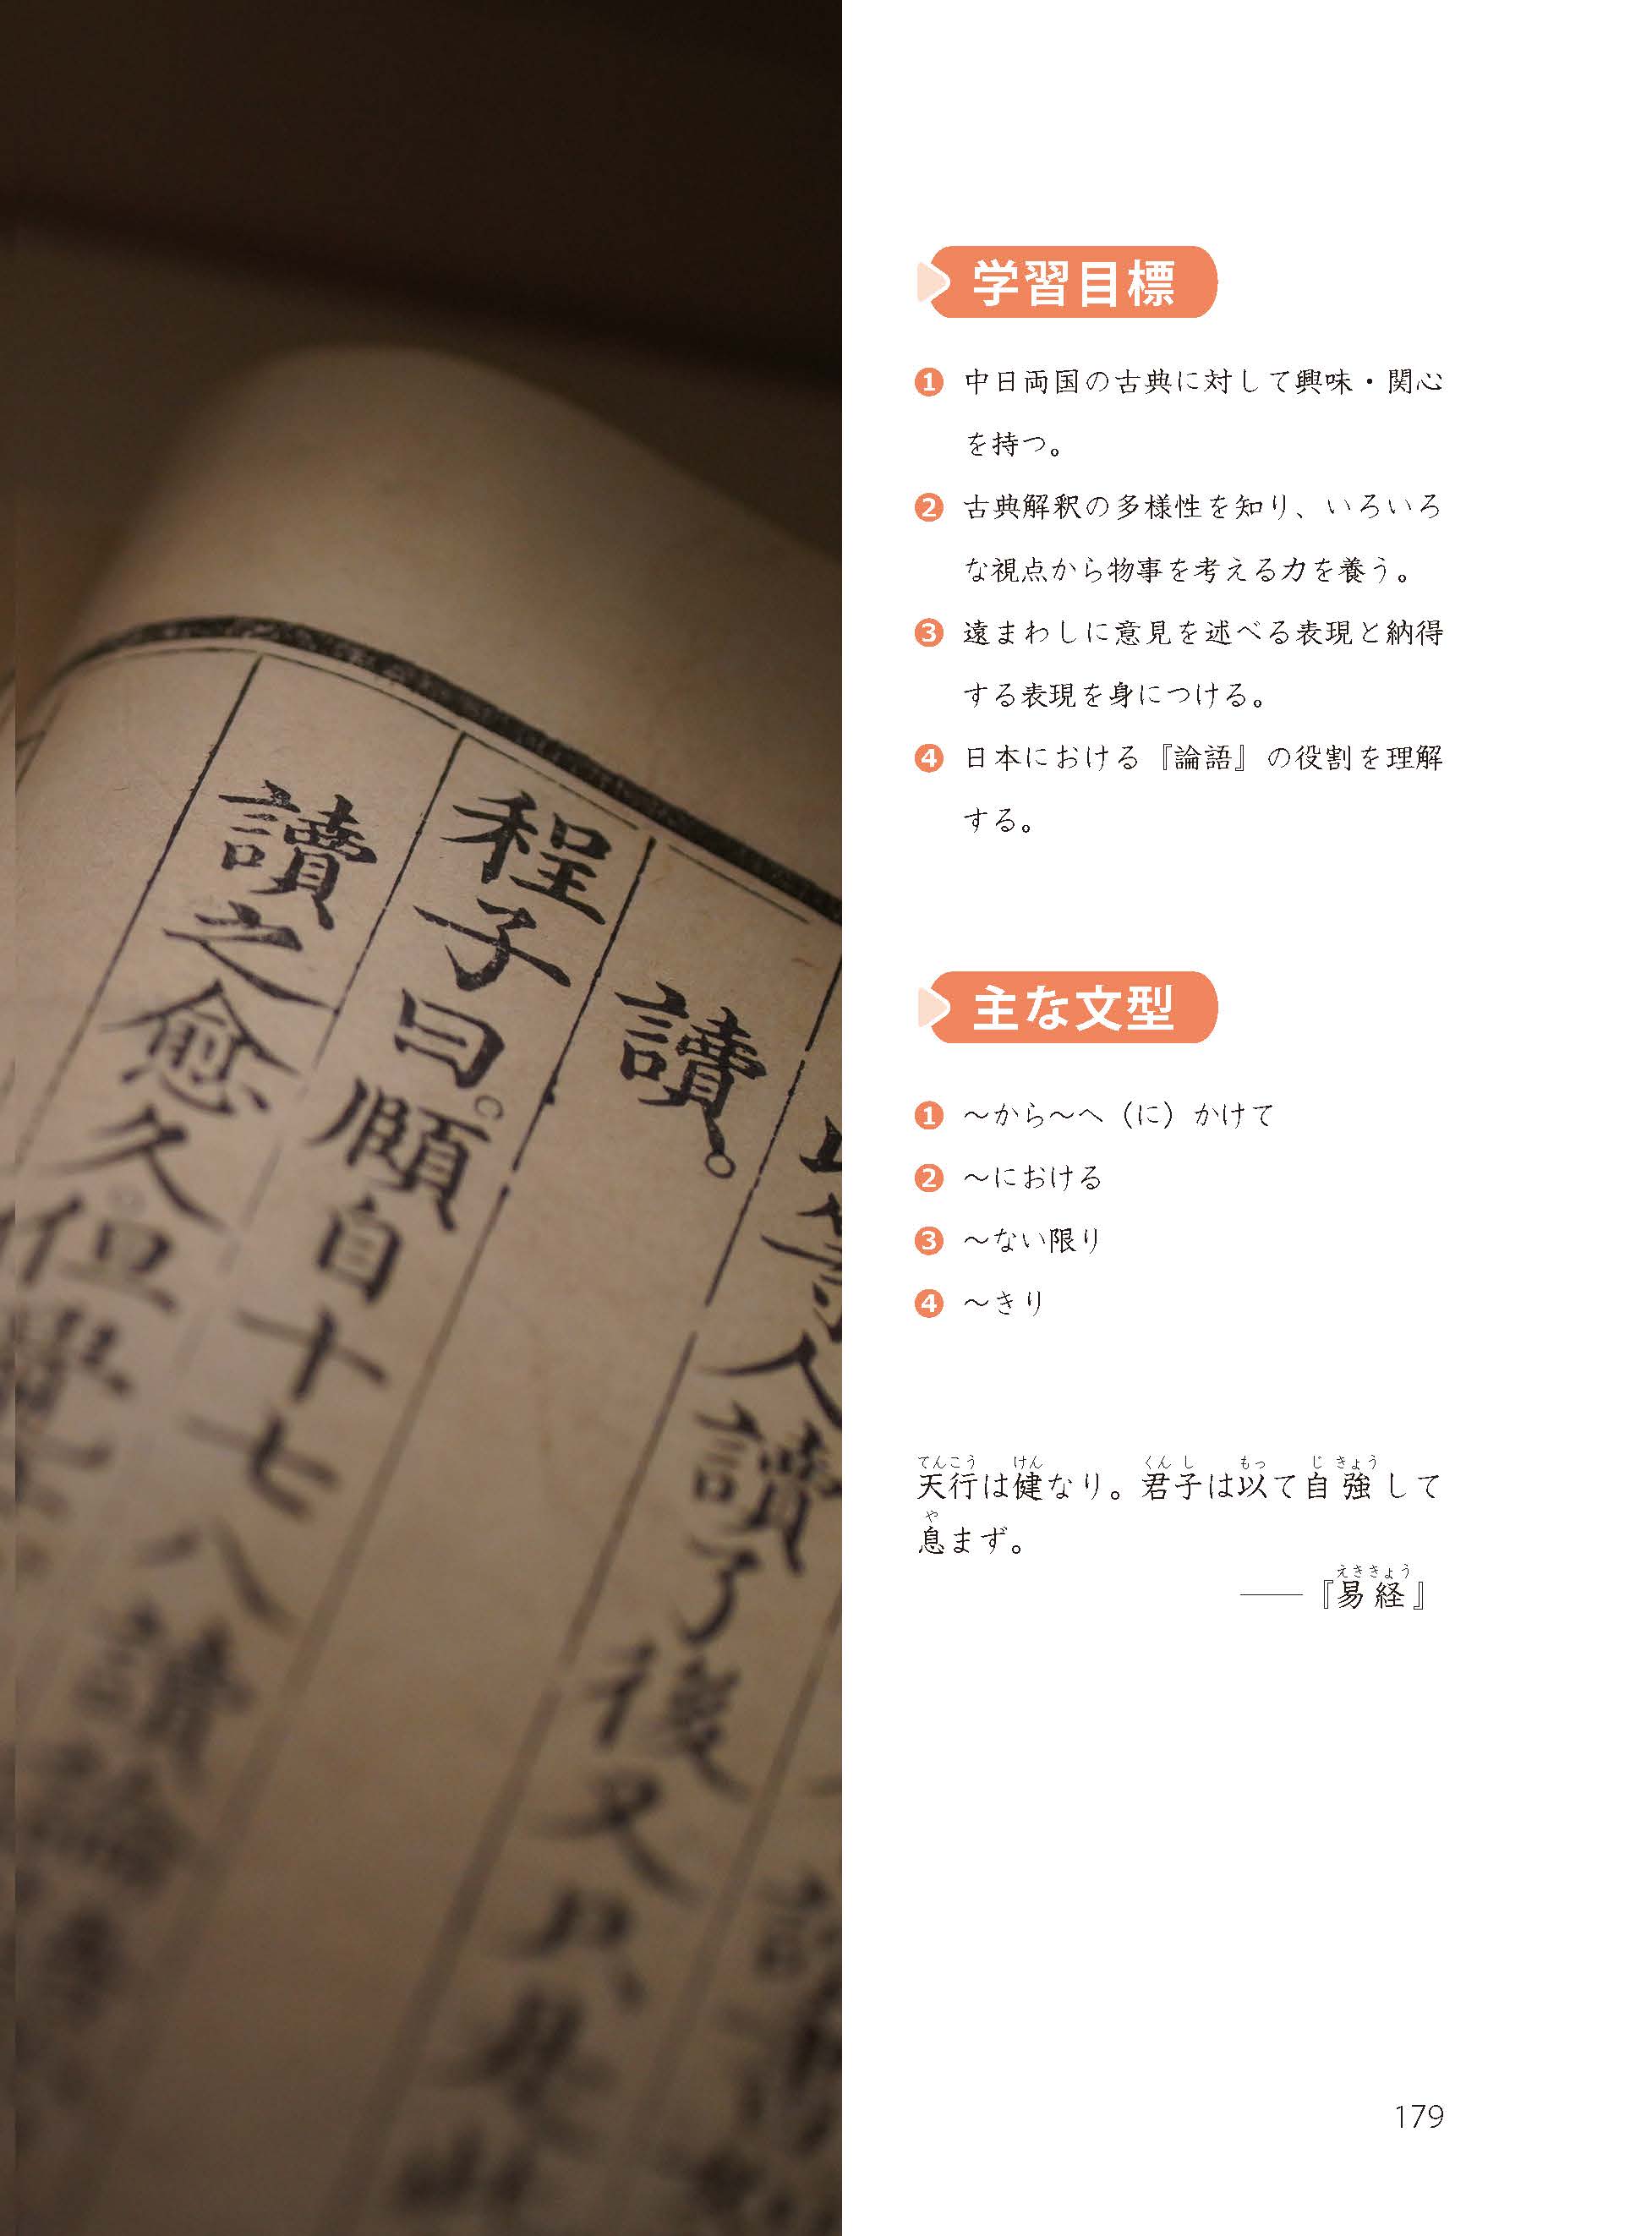 讀。
程子曰。頤自十七八讀論
讀之愈久但覺
人讀了後又只是
学習目標
❶ 中日両国の古典に対して興味・関心
を持つ。
❷ 古典解釈の多様性を知り、いろいろ
な視点から物事を考える力を養う。
❸ 遠まわしに意見を述べる表現と納得
する表現を身につける。
❹ 日本における『論語』の役割を理解
する。
主な文型
❶ ～から～へ（に）かけて
❷ ～における
❸ ～ない限り
❹ ～きり
てんこう けん くんし もっ じきょう
天行は健なり。君子は以て自強して
や
息まず。
えききょう
——『易経』
179